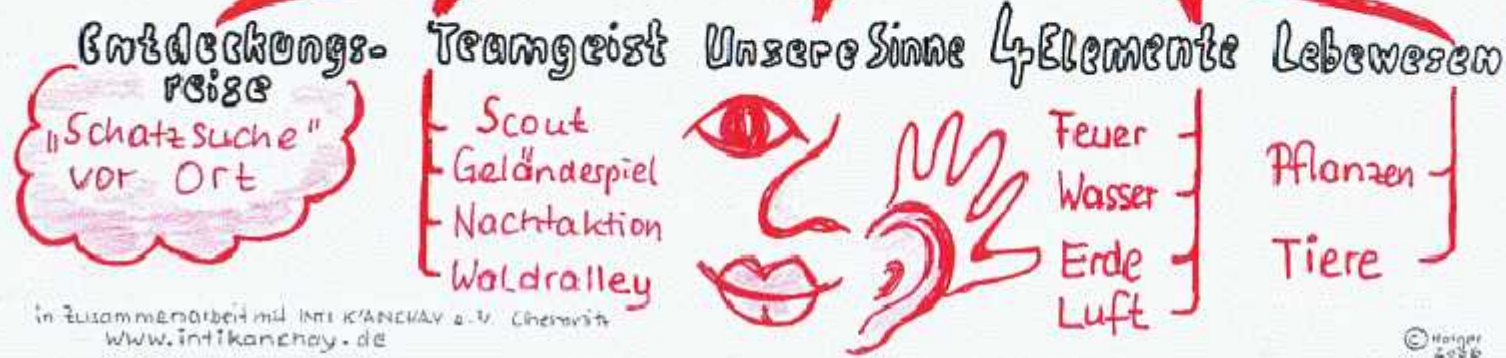 Entdeckungs-
reise
„Schatzsuche"
vor Ort
Teamgeist
Scout
Geländespiel
Nachtaktion
Waldralley
Unsere Sinne
4 Elemente
Feuer
Wasser
Erde
Luft
Lebewesen
Pflanzen
Tiere
in Zusammenarbeit mit INTI K'ANCHAY e.V. Chemnitz
www.intikanchay.de
©